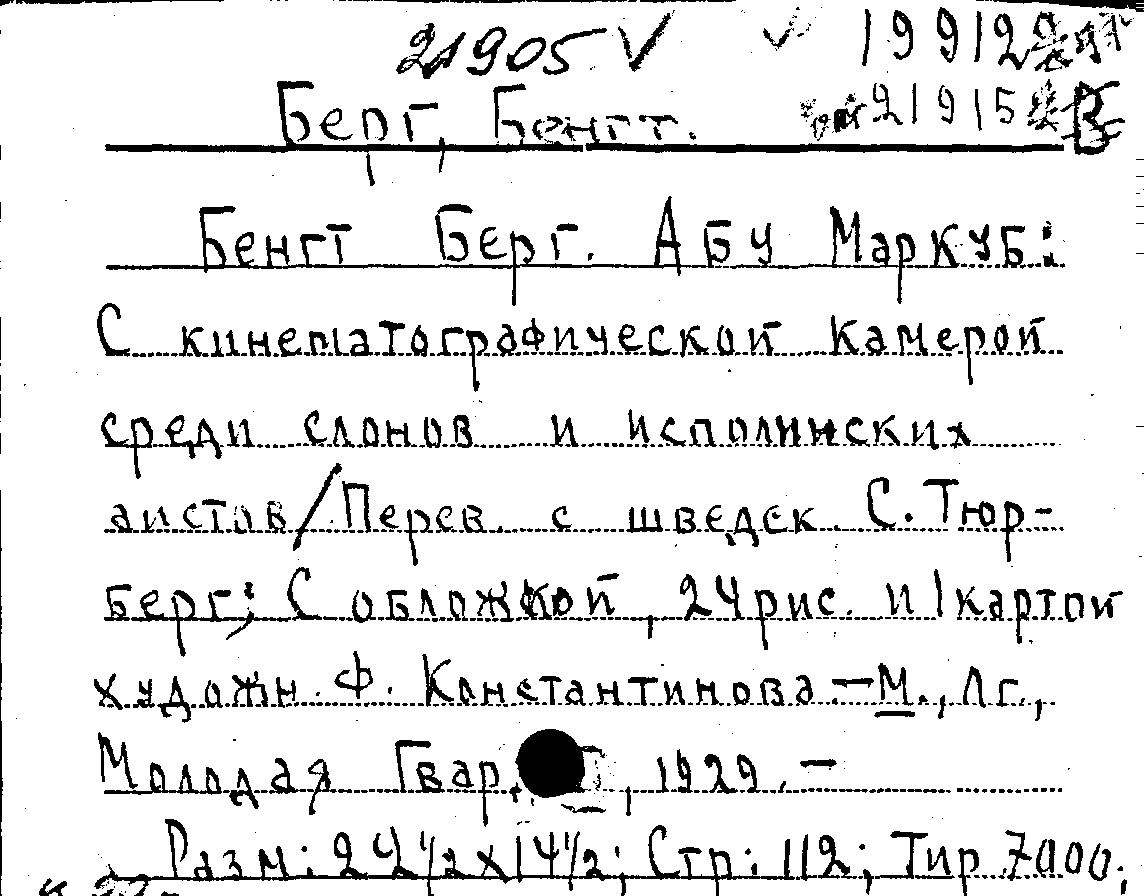 21905 √ √ 199122
Берг, Бенгт. 219152 Б
Бенгт Берг. Абу Маркуб:
С кинематографической камерой
среди слонов и исполинских
аистов/Перев. с шведск. С. Тюр-
берг; С обложкой, 24 рис. и 1 картой
художн. Ф. Константинова – М., Лг.,
Молодая Гвар , 1929. –
Разм: 22 1/2 x 14 1/2; Стр: 112; Тир 7000;